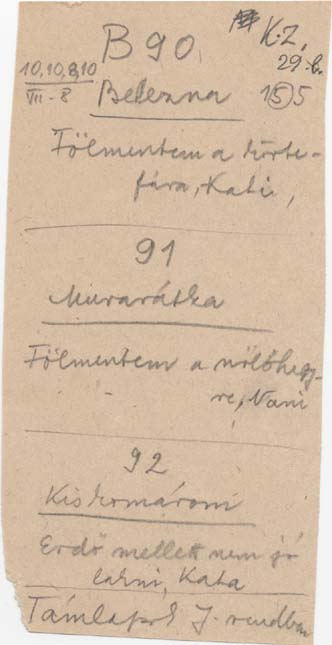 B 90.
K. Z.
29. b.
10, 10, 8, 10
VII - 8
Belezna
15 5
Fölmentem a körte-
fára, Kati,
91
Murarátka
Fölmentem a
re, Nani
92
Kiskomárom
Erdő mellett nem jó
lakni, Kata
Támlapok J. rendben